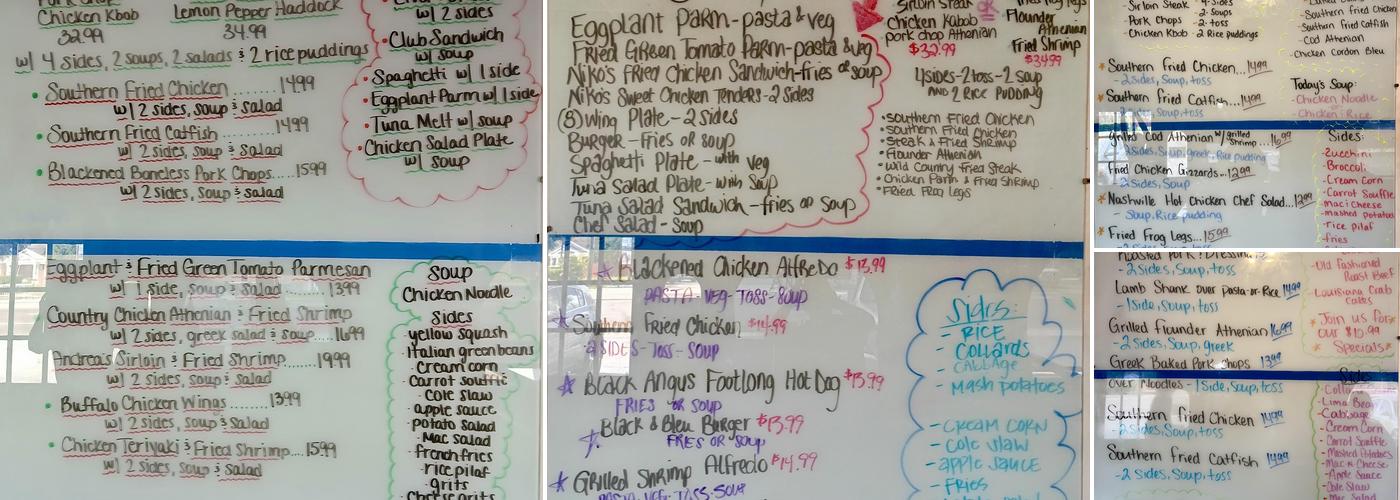 Chicken Kbob
32.99
Lemon Pepper Haddock
34.99
w/ 4 sides, 2 soups, 2 salads & 2 rice puddings
• Southern Fried Chicken ........ 14.99
w/ 2 sides, soup & salad
• Southern Fried Catfish ........ 14.99
w/ 2 sides, soup & salad
• Blackened Boneless Pork Chops....15.99
w/ 2 sides, soup & salad
w/ 2 sides
• Club Sandwich
w/ soup
• Spaghetti w/ 1 side
• Eggplant Parm w/ 1 side
• Tuna Melt w/ soup
• Chicken Salad Plate
w/ soup
Eggplant & Fried Green Tomato Parmesan
w/ 1 side, soup & salad ........ 13.99
Country Chicken Athenian & Fried Shrimp
w/ 2 sides, greek salad & soup.....16.99
Andrea's Sirloin & Fried Shrimp......19.99
w/ 2 sides, soup & salad
• Buffalo Chicken Wings .......13.99
w/ 2 sides, soup & salad
• Chicken Teriyaki & Fried Shrimp....15.99
w/ 2 sides, soup & salad
Soup
Chicken Noodle
Sides
yellow squash
Italian green beans
Cream corn
Carrot soufflé
Cole slaw
apple sauce
potato salad
Mac salad
french fries
rice pilaf
grits
Cheese grits
Eggplant Parm-pasta & veg
Fried Green Tomato Parm-pasta & veg
Niko's Fried Chicken Sandwich-fries or soup
Niko's Sweet Chicken Tenders-2 sides
(8) wing Plate-2 sides
Burger-Fries or soup
Spaghetti Plate-with veg
Tuna Salad Plate-with soup
Tuna Salad Sandwich-fries or soup
Chef Salad-Soup
Sirloin Steak
Chicken Kabob
pork chop Athenian
$32.99
OR
Flounder
Athenian
Fried Shrimp
$34.99
4 sides-2 toss-2 soup
AND 2 RICE PUDDING
• Southern Fried Chicken
• Steak & Fried Shrimp
• Flounder Athenian
• Wild Country fried Steak
• Chicken Parm & Fried Shrimp
• Fried Frog Legs
Blackened Chicken Alfredo $13.99
PASTA-VEG-TOSS-SOUP
Southern Fried Chicken $14.99
2 SIDES-TOSS-SOUP
Black Angus Footlong Hot Dog $13.99
FRIES OR SOUP
Black & Bleu Burger $13.99
FRIES OR SOUP
Grilled Shrimp Alfredo $14.99
PASTA-VEG-TOSS-SOUP
Sides:
- RICE
- COLLARDS
- CABBAGE
- Mash potatoes
- CREAM CORN
- Cole slaw
- apple sauce
- Fries
Sirloin Steak - 4-Sides
Pork Chops - 2-Soups
Chicken Kbob - 2-toss
2 Rice puddings
Southern Fried Chicken...14.99
- 2 sides, Soup, toss
Southern Fried Catfish...14.99
- 2 sides, Soup, toss
- Southern fried Chicken
- Southern fried Catfish
- Cod Athenian
- Chicken Cordon Bleu
Today's Soup:
- Chicken Noodle
or
- Chicken & Rice
Grilled Cod Athenian w/ grilled shrimp...16.99
2 sides, Soup, greek, Rice pudding
Fried Chicken Gizzards...12.99
- 2 sides, Soup
Nashville Hot Chicken Chef Salad...12.99
- Soup, Rice pudding
Fried Frog Legs...15.99
Sides:
- Zucchini
- Broccoli
- Cream Corn
- Carrot Souffle
- Mac & Cheese
- mashed potatoes
- rice pilaf
- fries
Roasted Pork & Dressing
- 2 Sides, Soup, toss
Lamb Shank over Pasta or Rice 14.99
- 1 side, Soup, toss
Grilled Flounder Athenian 16.99
- 2 Sides, Soup, greek
Greek Baked Pork Chops 13.99
- Old Fashioned
Roast Beef
Louisiana Crab
Cakes
Join us for
our $10.99
Specials
over Noodles-1 side, Soup, toss
Southern Fried Chicken 14.99
- 2 Sides, Soup, toss
Southern Fried Catfish 14.99
- 2 Sides, Soup, toss
Sides
- Lima Bea
- Cabbage
- Cream Corn
- Carrot Souffle
- Mashed Potatoes
- Mac n Cheese
- Apple Sauce
- Cole Slaw